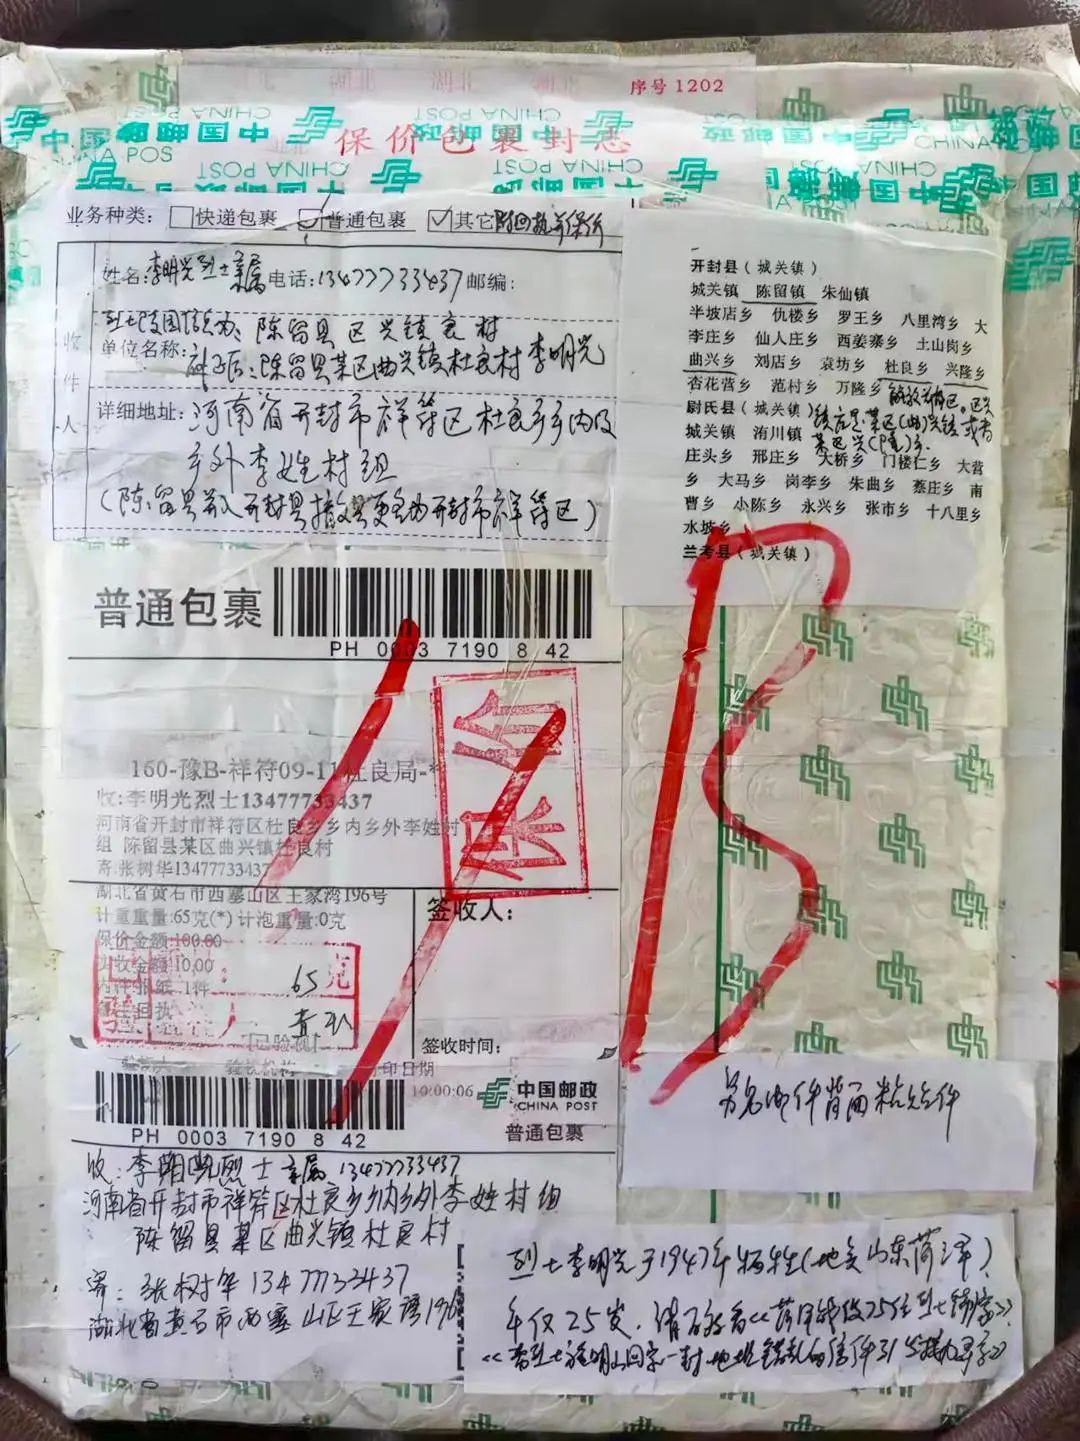 序号 1202
中国邮政
CHINA POST
保价包裹封志
业务种类: 快递包裹 普通包裹 其它
姓名:李明光烈士亲属 电话:13477733437 邮编:
陈留县区兴镇良村
单位名称: 陈留县某区曲兴镇杜良村 李明光
详细地址:河南省开封市祥符区杜良乡乡内及
乡外李姓村组
(陈留县并入开封县 开封市祥符区)
收件人
开封县(城关镇)
城关镇 陈留镇 朱仙镇
半坡店乡 仇楼乡 罗王乡 八里湾乡 大
李庄乡 仙人庄乡 西姜寨乡 土山岗乡
曲兴乡 刘店乡 袁坊乡 杜良乡 兴隆乡
杏花营乡 范村乡 万隆乡
尉氏县(城关镇)
城关镇 洧川镇
庄头乡 邢庄乡 大桥乡 门楼任乡 大营
乡 大马乡 岗李乡 朱曲乡 蔡庄乡 南
曹乡 小陈乡 永兴乡 张市乡 十八里乡
水坡乡
兰考县(城关镇)
普通包裹
PH 0003 7190 8 42
160-豫B-祥符09-11杜良局-*
收:李明光烈士13477733437
河南省开封市祥符区杜良乡乡内乡外李姓村
组 陈留县某区曲兴镇杜良村
寄:张树华13477733437
湖北省黄石市西塞山区王家湾196号
计重重量:65克(*) 计泡重量:0克
保价金额:100.00
实收金额:10.00
65克
签收人:
签收时间:
10:00:06
中国邮政
CHINA POST
普通包裹
PH 0003 7190 8 42
收:李明光烈士亲属 13477733437
河南省开封市祥符区杜良乡乡内乡外李姓村组
陈留县某区曲兴镇杜良村
寄:张树华 13477733437
湖北省黄石市西塞山区王家湾196
烈士李明光于1947年牺牲(地点山东菏泽)
年仅25岁.
B